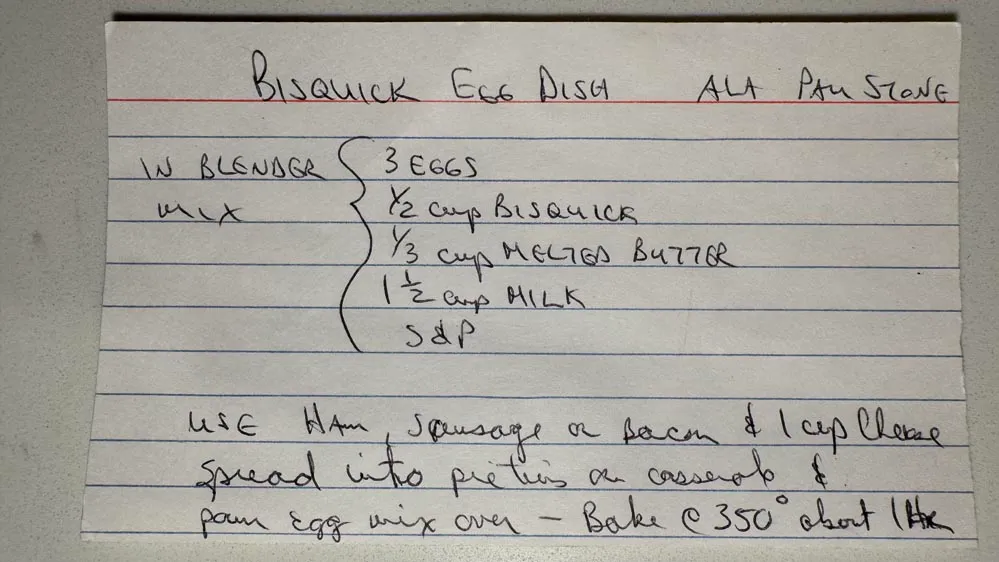 BISQUICK EGG DISH ALA PAM STONE
IN BLENDER 3 EGGS
MIX 1/2 cup BISQUICK
1/3 cup MELTED BUTTER
1 1/2 cup MILK
S & P
USE HAM, Sausage or Bacon & 1 cup Cheese
Spread into pie tin or casserole &
pour Egg mix over - Bake @ 350° about 1 Hr